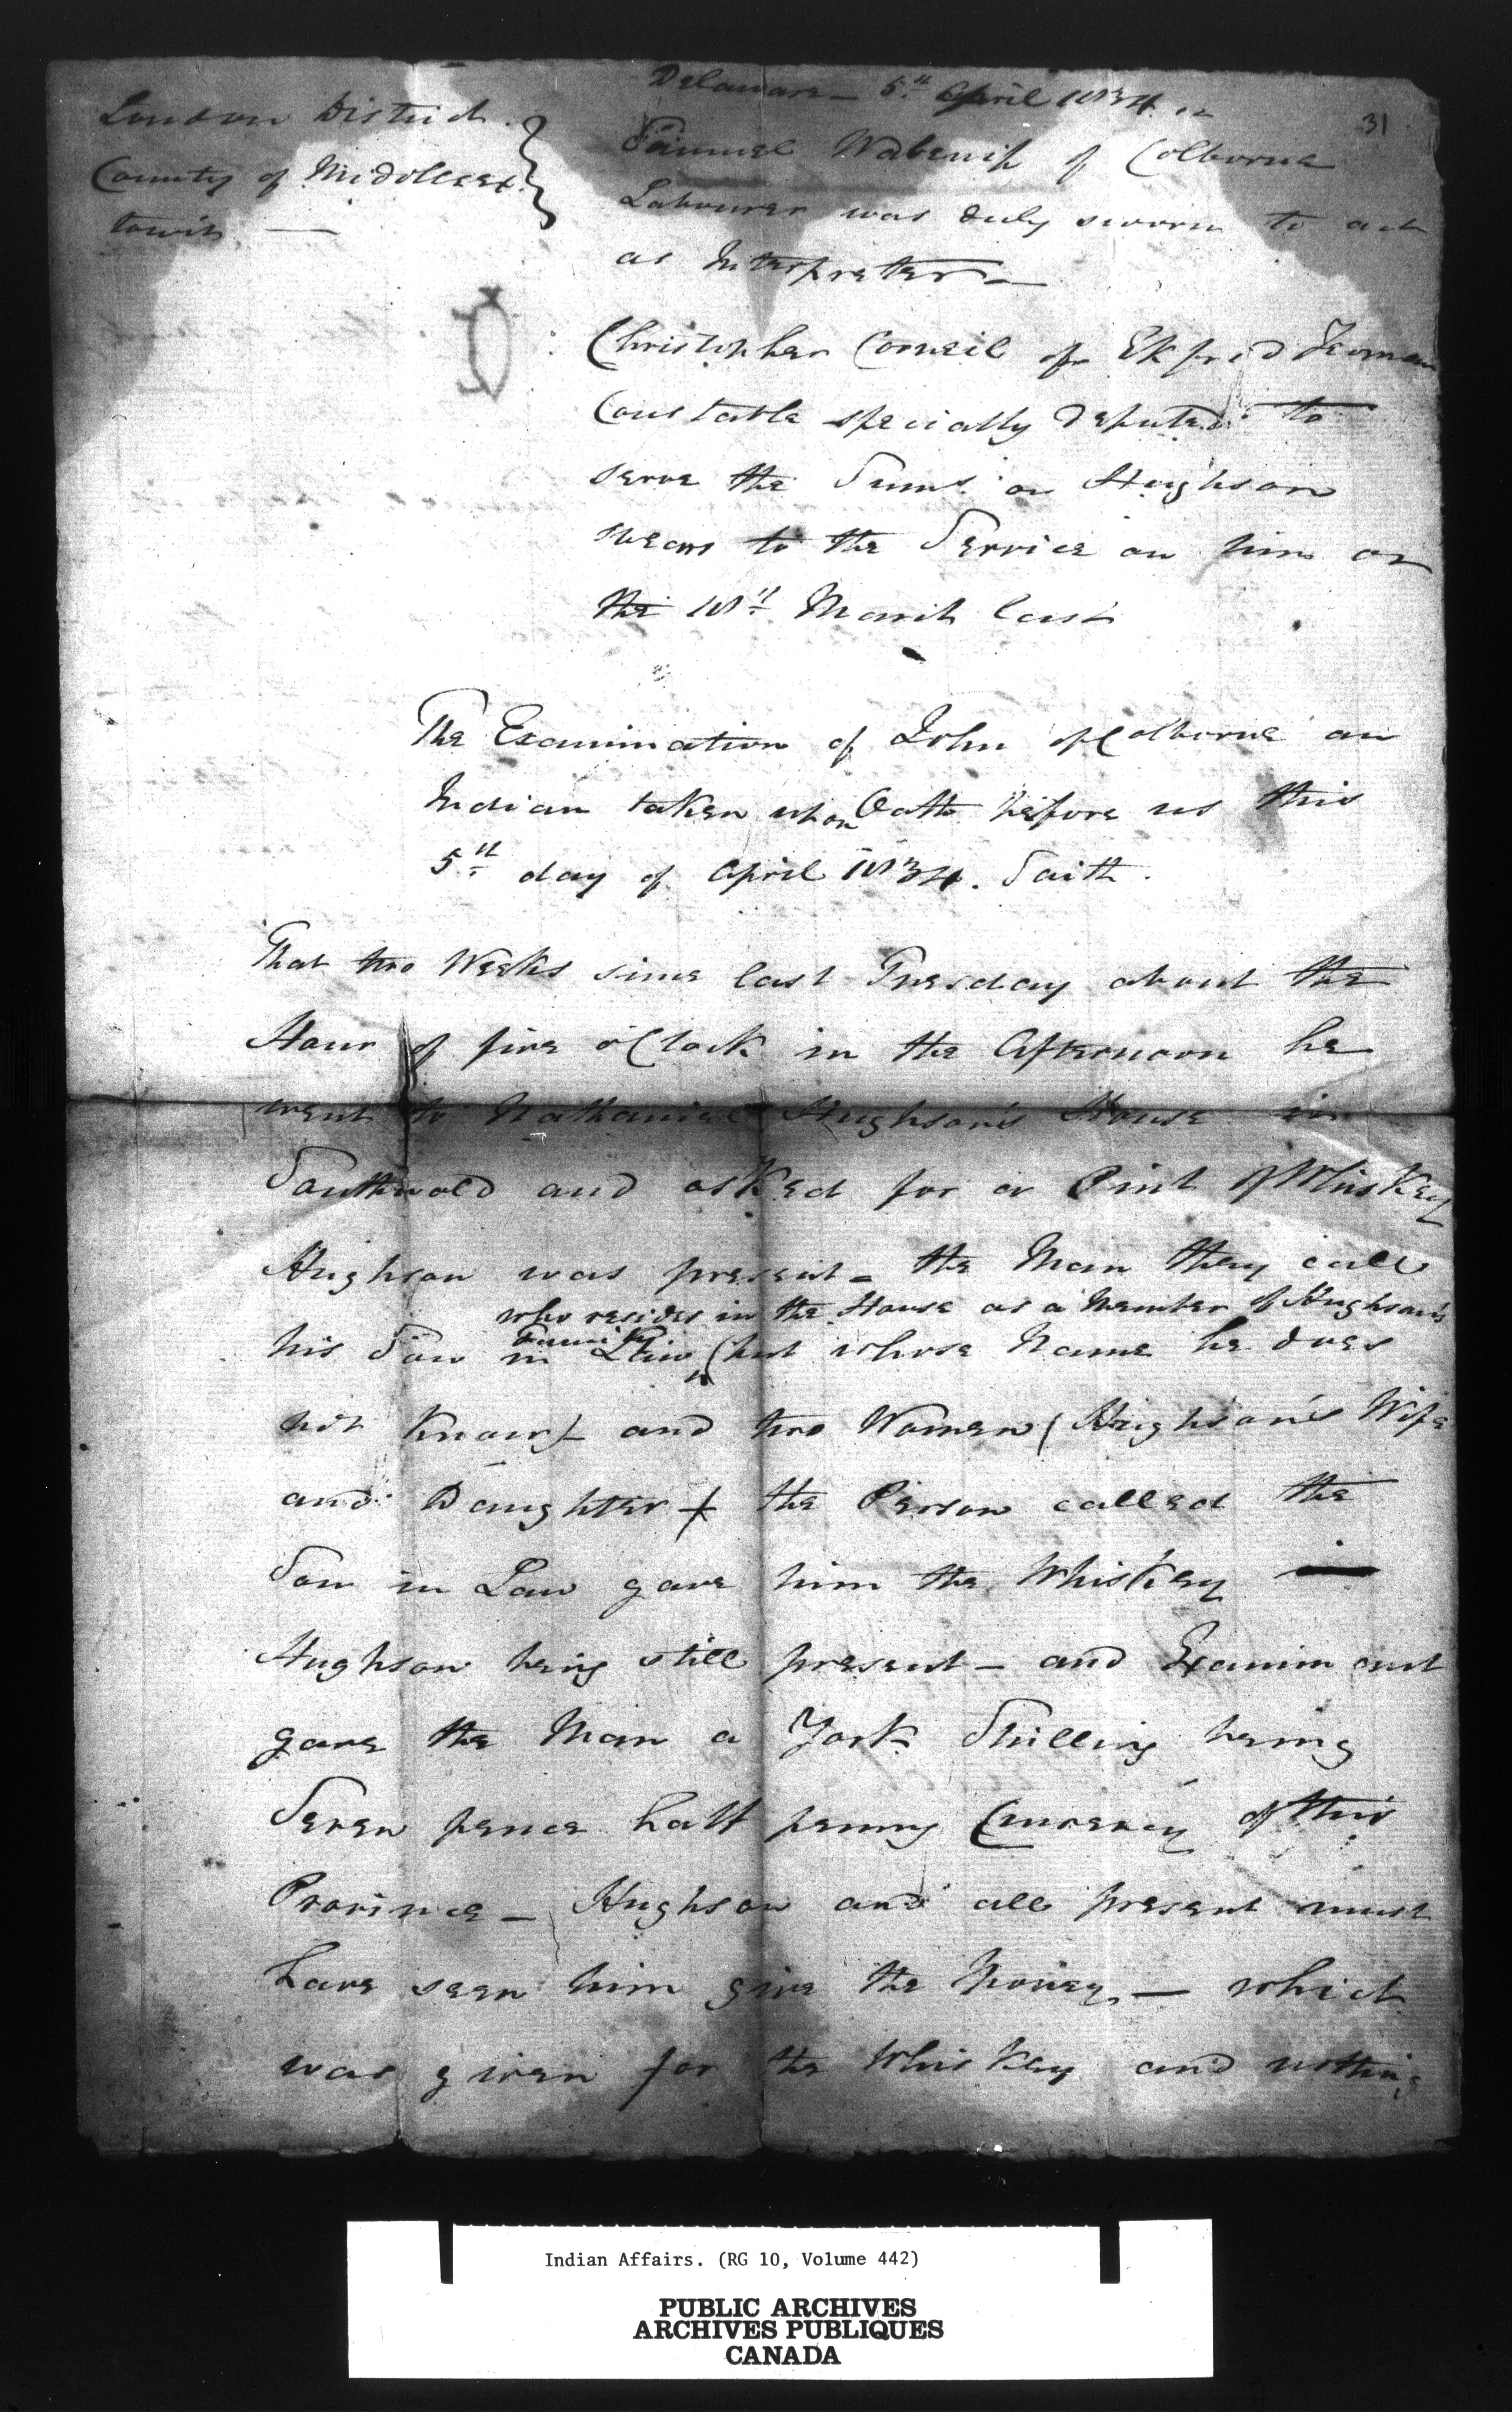 31
London District
County of Middlesex
towit —
Delaware — 5th April 1834
Samuel Wabenip of Colborne
Labourer was duly sworn to act
as Interpreter —
Christopher Corneil of Ekfrid Yeoman
Constable specially deputed to
serve the Sums. on Hughson
swears to the Service on him on
the 18th March last
The Examination of John of Colborne an
Indian taken upon Oath before us this
5th day of April 1834. Saith.
That two Weeks since last Tuesday about the
Hour of five o'Clock in the Afternoon he
went to Nathaniel Hughson's House in
Southwold and asked for a Pint of Whiskey
Hughson was present — the Man they call
who resides in the House as a Member of Hughson's
Family.
his Son in Law (but whose Name he does
not know) and two Women (Hughson's Wife
and Daughter) the Person called the
Son in Law gave him the Whiskey —
Hughson being still present — and Examinant
gave the Man a York Shilling being
Seven pence half penny Currency of this
Province — Hughson and all present must
have seen him give the Money — which
was given for the Whiskey and nothing
Indian Affairs. (RG 10, Volume 442)
PUBLIC ARCHIVES
ARCHIVES PUBLIQUES
CANADA